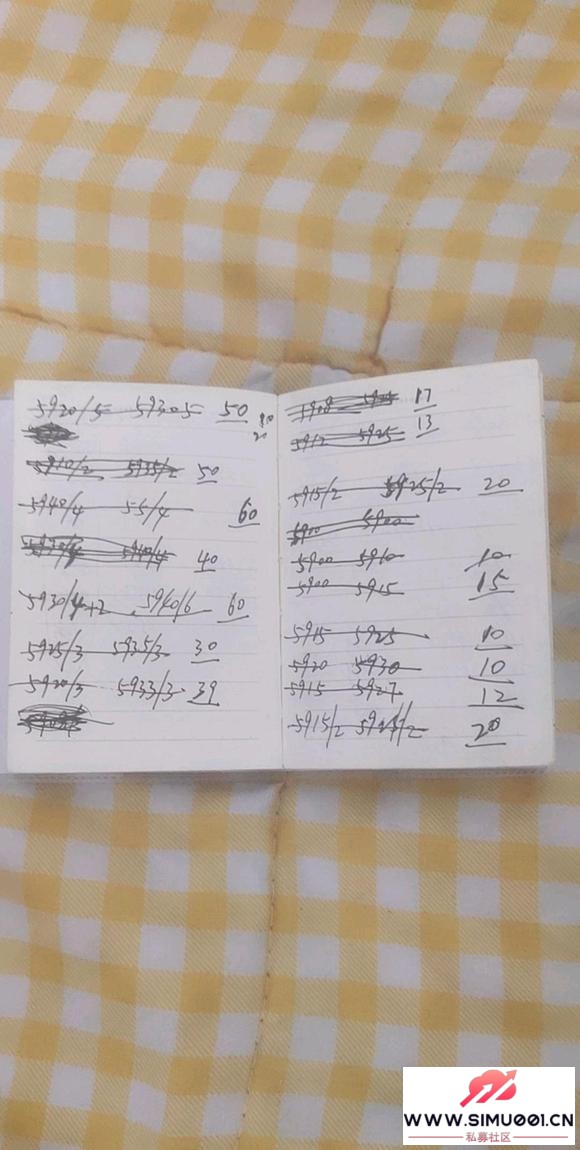 5920/5 5930 5 50
5910/2 5935/2 50
5940/4 55/4 60
40
5930/4+2 5940/6 60
5925/3 5935/3 30
5920/3 5933/3 39
5908 17
5912 5925 13
5915/2 5925/2 20
5900 5900
5900 5910 10
5900 5915 15
5915 5925 10
5920 5930 10
5915 5927 12
5915/2 20
WWW.SIMU001.CN
私募社区